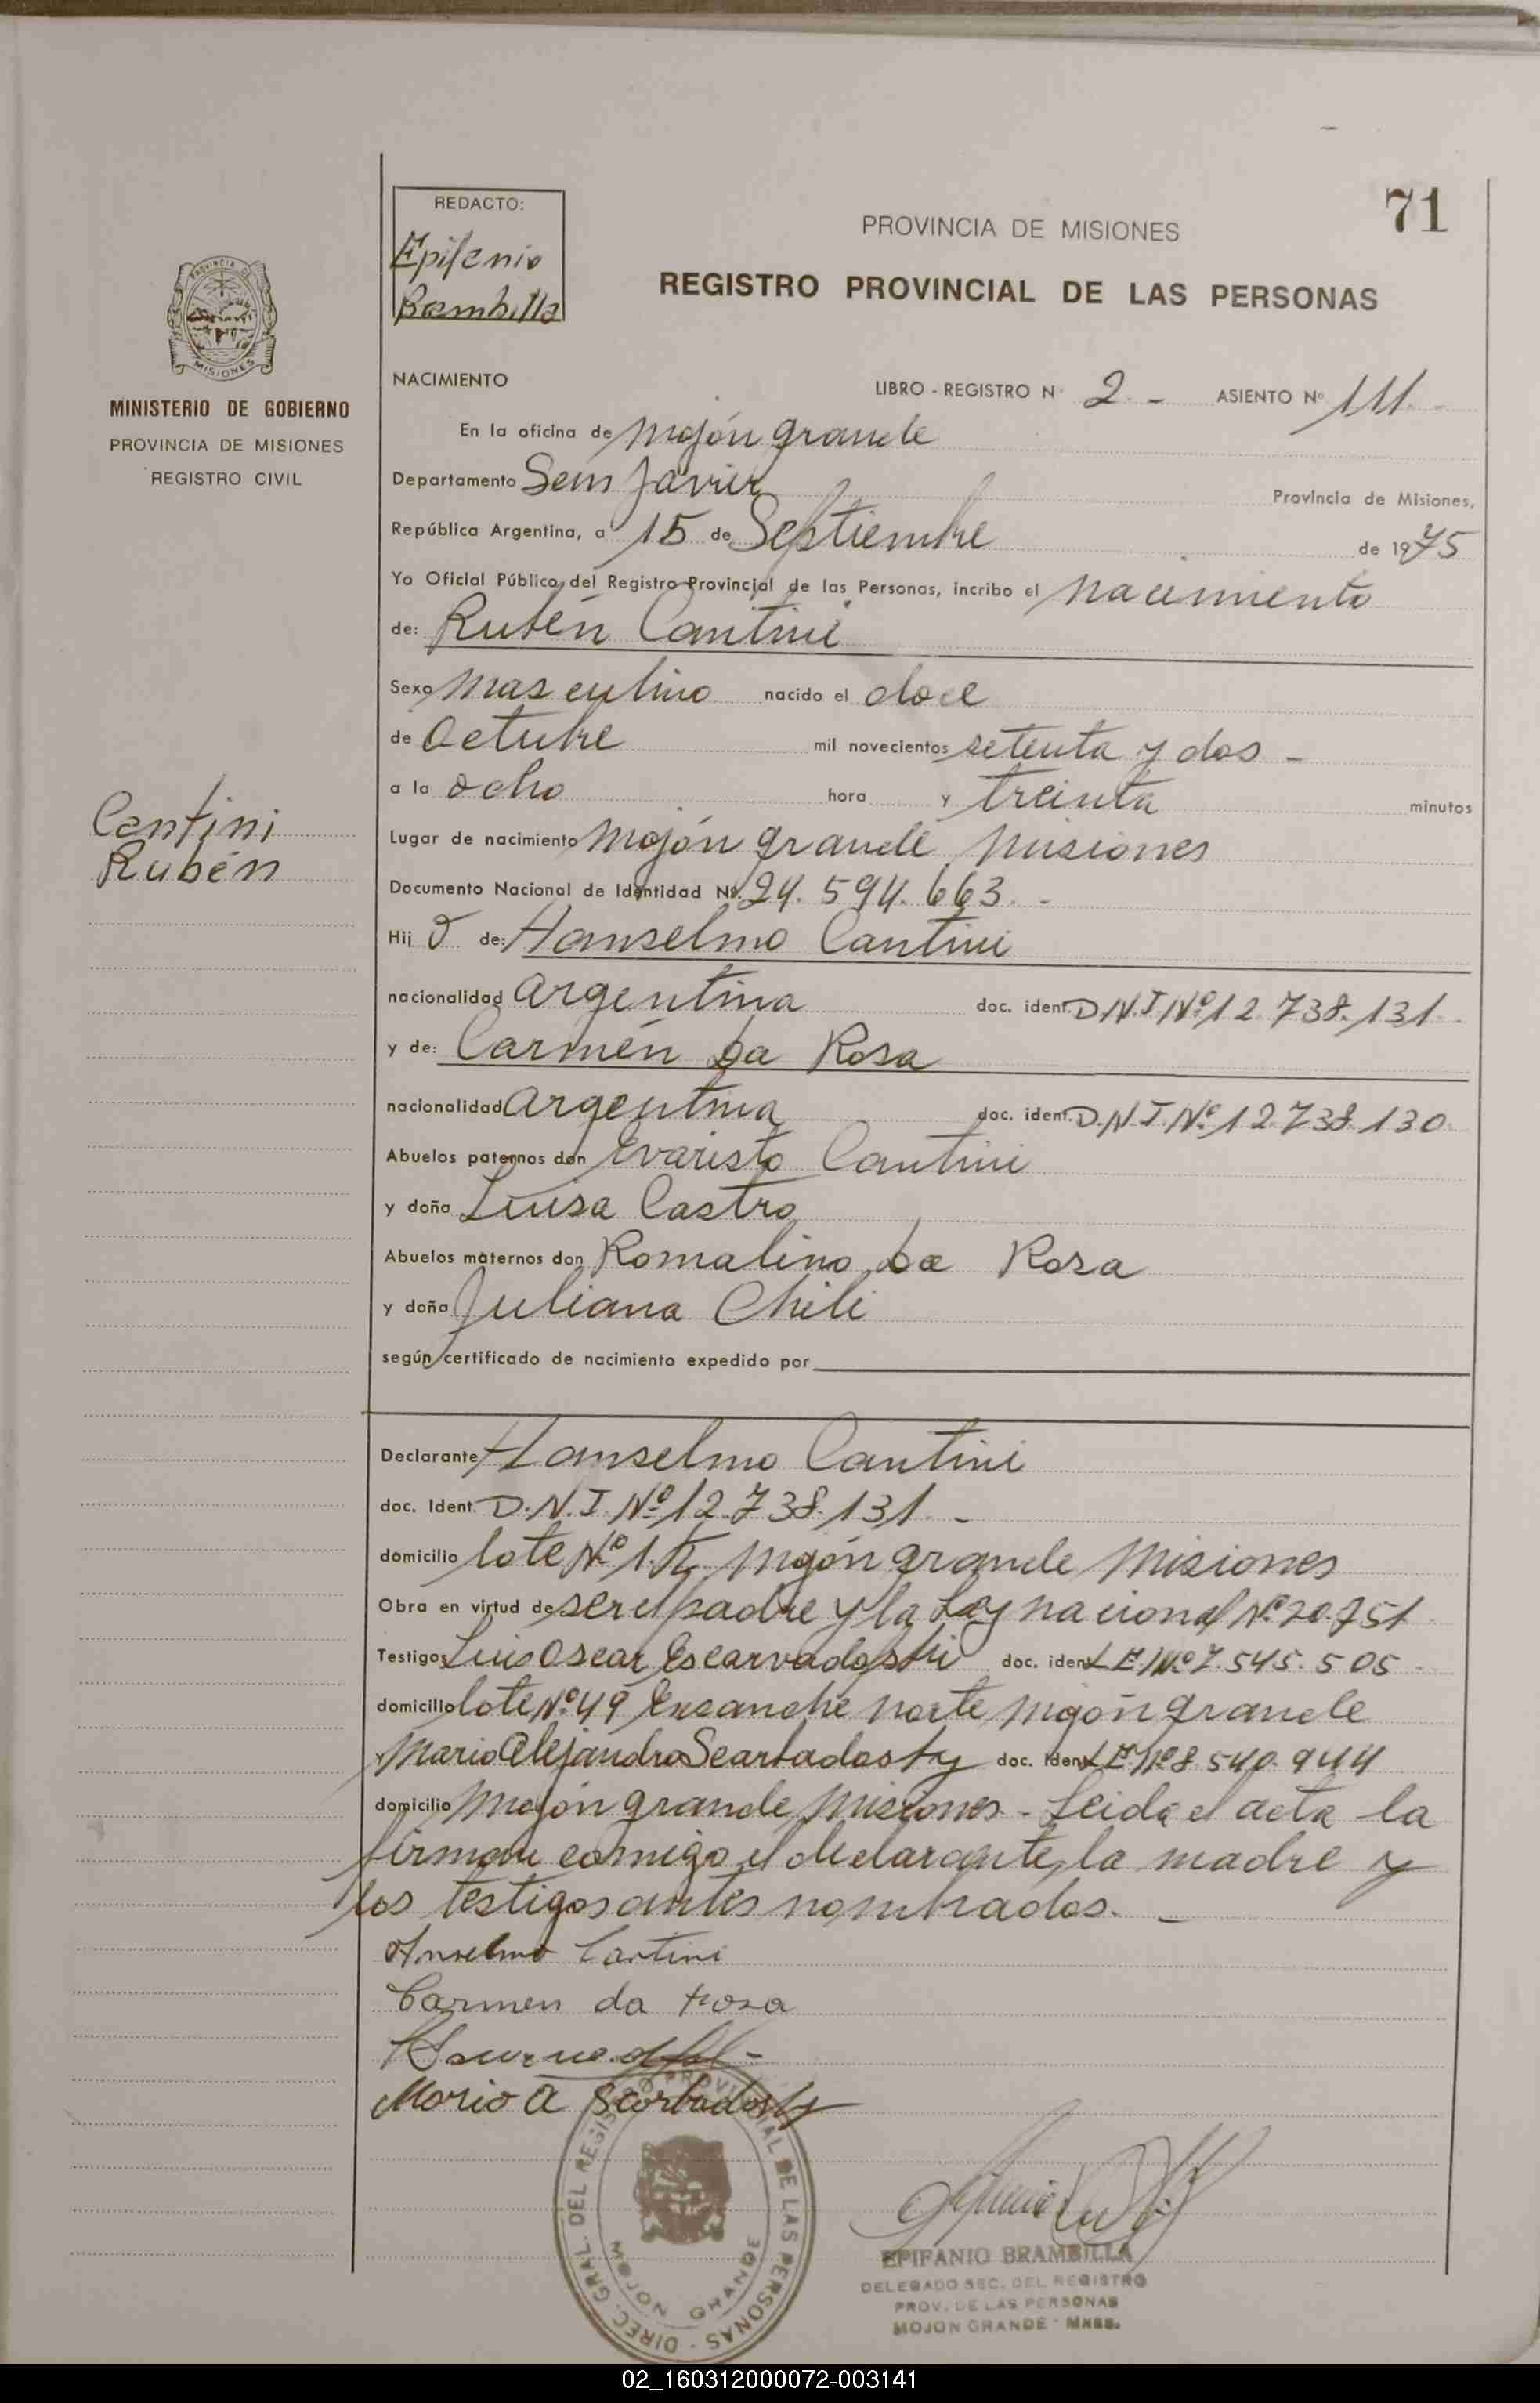 71
REDACTO:
Epifanio
Brambilla
PROVINCIA DE MISIONES
REGISTRO PROVINCIAL DE LAS PERSONAS
PROVINCIA DE
MISIONES
MINISTERIO DE GOBIERNO
PROVINCIA DE MISIONES
REGISTRO CIVIL
NACIMIENTO LIBRO - REGISTRO Nº 2 - ASIENTO Nº 111. -
En la oficina de Mojón grande
Departamento San Javier Provincia de Misiones,
República Argentina, a 15 de Septiembre de 1975
Yo Oficial Público, del Registro Provincial de las Personas, incribo el nacimiento
de: Rubén Cantini
Sexo masculino nacido el doce
de Octubre mil novecientos setenta y dos -
a la ocho hora y treinta minutos
Cantini
Rubén
Lugar de nacimiento Mojón grande Misiones
Documento Nacional de Identidad Nº. 24.594.663. -
Hij o de: Hanselmo Cantini
nacionalidad argentina doc. ident. D.N.I. Nº 12.738.131.
y de: Carmén Da Rosa
nacionalidad argentina doc. ident. D.N.I. Nº 12.738.130
Abuelos paternos don Evaristo Cantini
y doña Luisa Castro
Abuelos maternos don Romalino Da Rosa
y doña Juliana Chili
según certificado de nacimiento expedido por
Declarante Hanselmo Cantini
doc. Ident. D.N.I. Nº 12.738.131. -
domicilio lote Nº Mojón grande Misiones
Obra en virtud de ser el padre y la Ley nacional Nº 20.751
Testigos Luis Oscar doc. ident L.E. Nº 7.545.505
domicilio lote Nº 49 Ensanche norte Mojón grande
Mario Alejandro Scarbadosky doc. ident L.E. Nº 8.540.944
domicilio Mojón grande Misiones - Leida el acta la
firman comigo el declarante, la madre y
los testigos antes nombrados. -
Anselmo Cantini
Carmen da Rosa
Mario A Scorbadosky
DIREC. GRAL. DEL REGISTRO PROVINCIAL DE LAS PERSONAS
MOJON GRANDE
EPIFANIO BRAMBILLA
DELEGADO SEC. DEL REGISTRO
PROV. DE LAS PERSONAS
MOJON GRANDE - MNES.
02_160312000072-003141